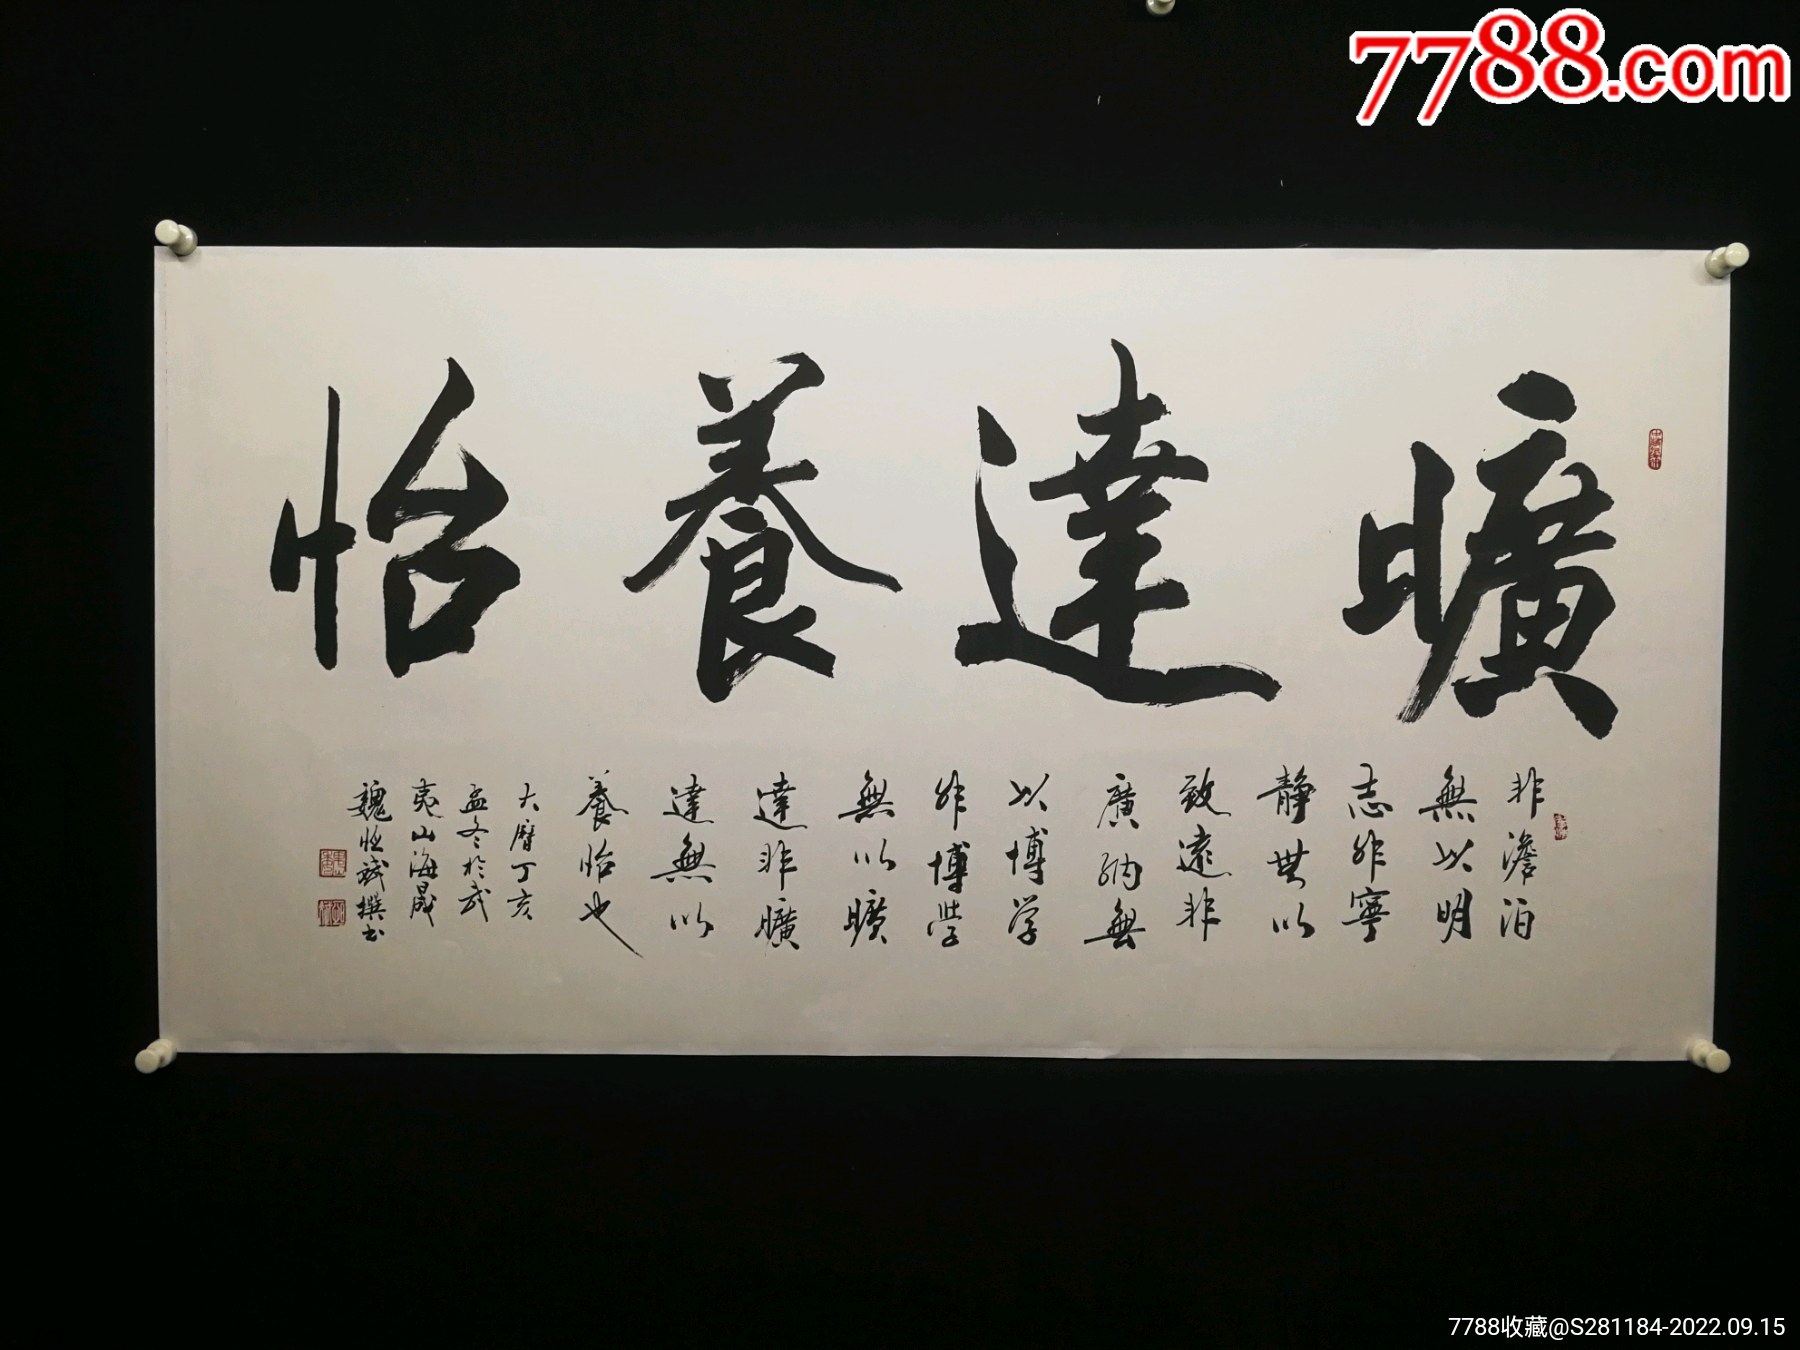 7788.com
曠達養怡
非澹泊
無以明
志非寧
靜無以
致遠非
廣納無
以博学
非博學
無以曠
達非曠
達無以
養怡也
大曆丁亥
孟冬於武
夷山海晟
魏 撰书
7788收藏@S281184-2022.09.15